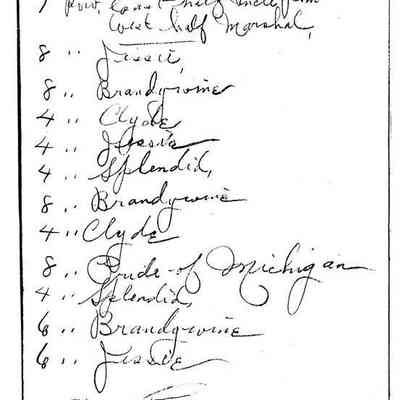 7 Rows East half Uncle Jim
West half Marshal,
8 ,, Jessie,
8 ,, Brandywine
4 ,, Clyde
4 ,, Jessie
4 ,, Splendid,
8 ,, Brandywine
4 ,, Clyde
8 ,, Pride-of Michigan
4 ,, Splendid,
6 ,, Brandywine
6 ,, Jessie